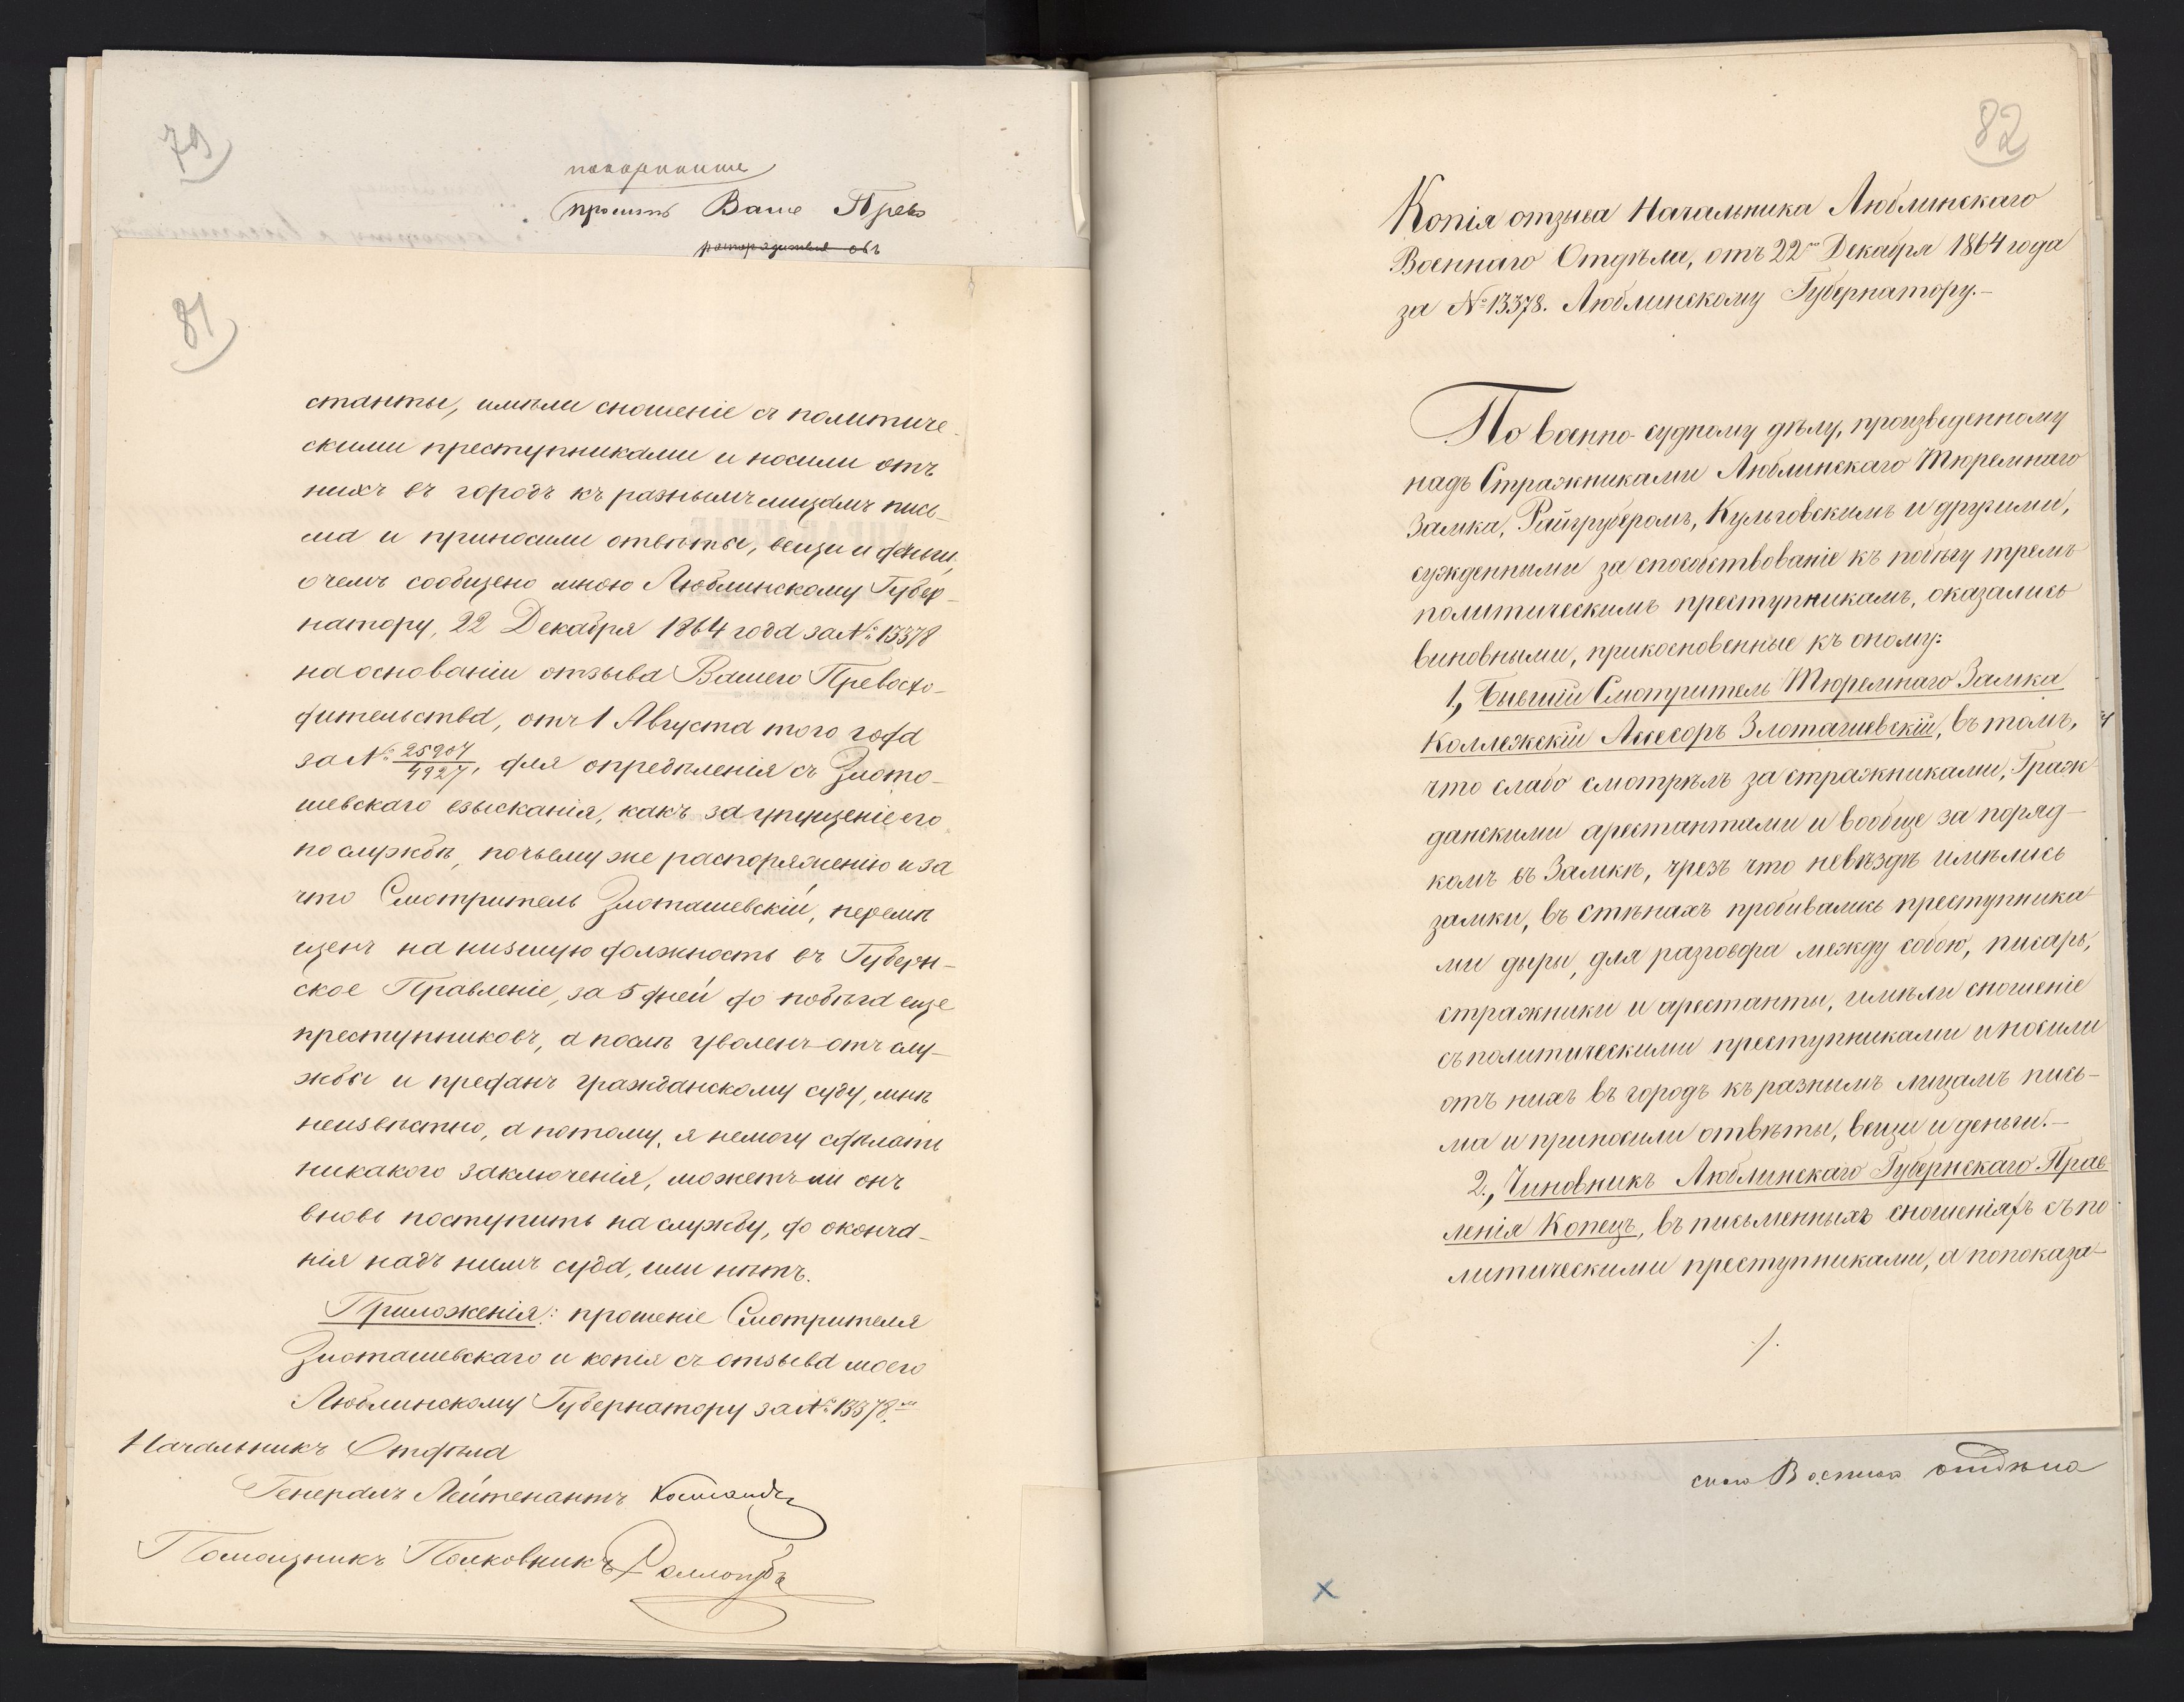 79
покорнѣйше
просить Ваше Прево
распорядиться объ
81
станты, имѣли сношеніе съ политиче-
скими преступниками и носили отъ
нихъ въ городъ къ разнымъ лицамъ пись-
ма и приносили отвѣты, вещи и деньги,
о чемъ сообщено мною Люблинскому Губер-
натору, 22 Декабря 1864 года за № 13378
на основаніи отзыва Вашего Превосхо-
дительства, отъ 1 Августа того года
за № 25904/4927, для опредѣленія съ Злото-
шевскаго взысканія, какъ за упущеніе его
по службѣ, почьему же распоряженію и за
что Смотритель Злоташевскій, перемѣ
щенъ на низшую должность въ Губерн-
ское Правленіе, за 5 дней до побѣга еще
преступниковъ, а послѣ уволенъ отъ слу-
жбы и преданъ гражданскому суду, мнѣ
неизвѣстно, а потому, я немогу сдѣлать
никакого заключенія, можетъ ли онъ
вновь поступить на службу, до оконча-
нія надъ нимъ суда, или нѣтъ.
Приложенія: прошеніе Смотрителя
Злоташевскаго и копія съ отзыва моего
Люблинскому Губернатору за № 13378.
Начальникъ Отдѣла
Генералъ Лейтенантъ
Помощникъ Полковникъ
82
Копія отзыва Начальника Люблинскаго
Военнаго Отдѣла, отъ 22го Декабря 1864 года
за № 13378. Люблинскому Губернатору.-
По военно-судному дѣлу, произведенному
надъ Стражниками Люблинскаго Тюремнаго
Замка, Райгруберомъ, Кульговскимъ и другими,
сужденными за способствованіе къ побѣгу тремъ
политическимъ преступникамъ, оказались
виновными, прикосновенные къ оному:
1., Бывшій Смотритель Тюремнаго Замка
Коллежскій Ассесоръ Злоташевскій, въ томъ,
что слабо смотрѣлъ за стражниками, Граж
данскими арестантами и вообще за поряд-
комъ въ Замкѣ, чрезъ что невѣздѣ имѣлись
замки, въ стѣнахъ пробивались преступника
ми дыры, для разговора между собою, писарь,
стражники и арестанты, имѣли сношеніе
съ политическими преступниками и носили
отъ нихъ въ городъ къ разнымъ лицамъ пись-
ма и приносили отвѣты, вещи и деньги.-
2., Чиновникъ Люблинскаго Губернскаго Прав
ленія Копецъ, въ письменныхъ сношеніяхъ съ по
литическими преступниками, а попоказа-
./.
скаго Военнаго отдѣла
x